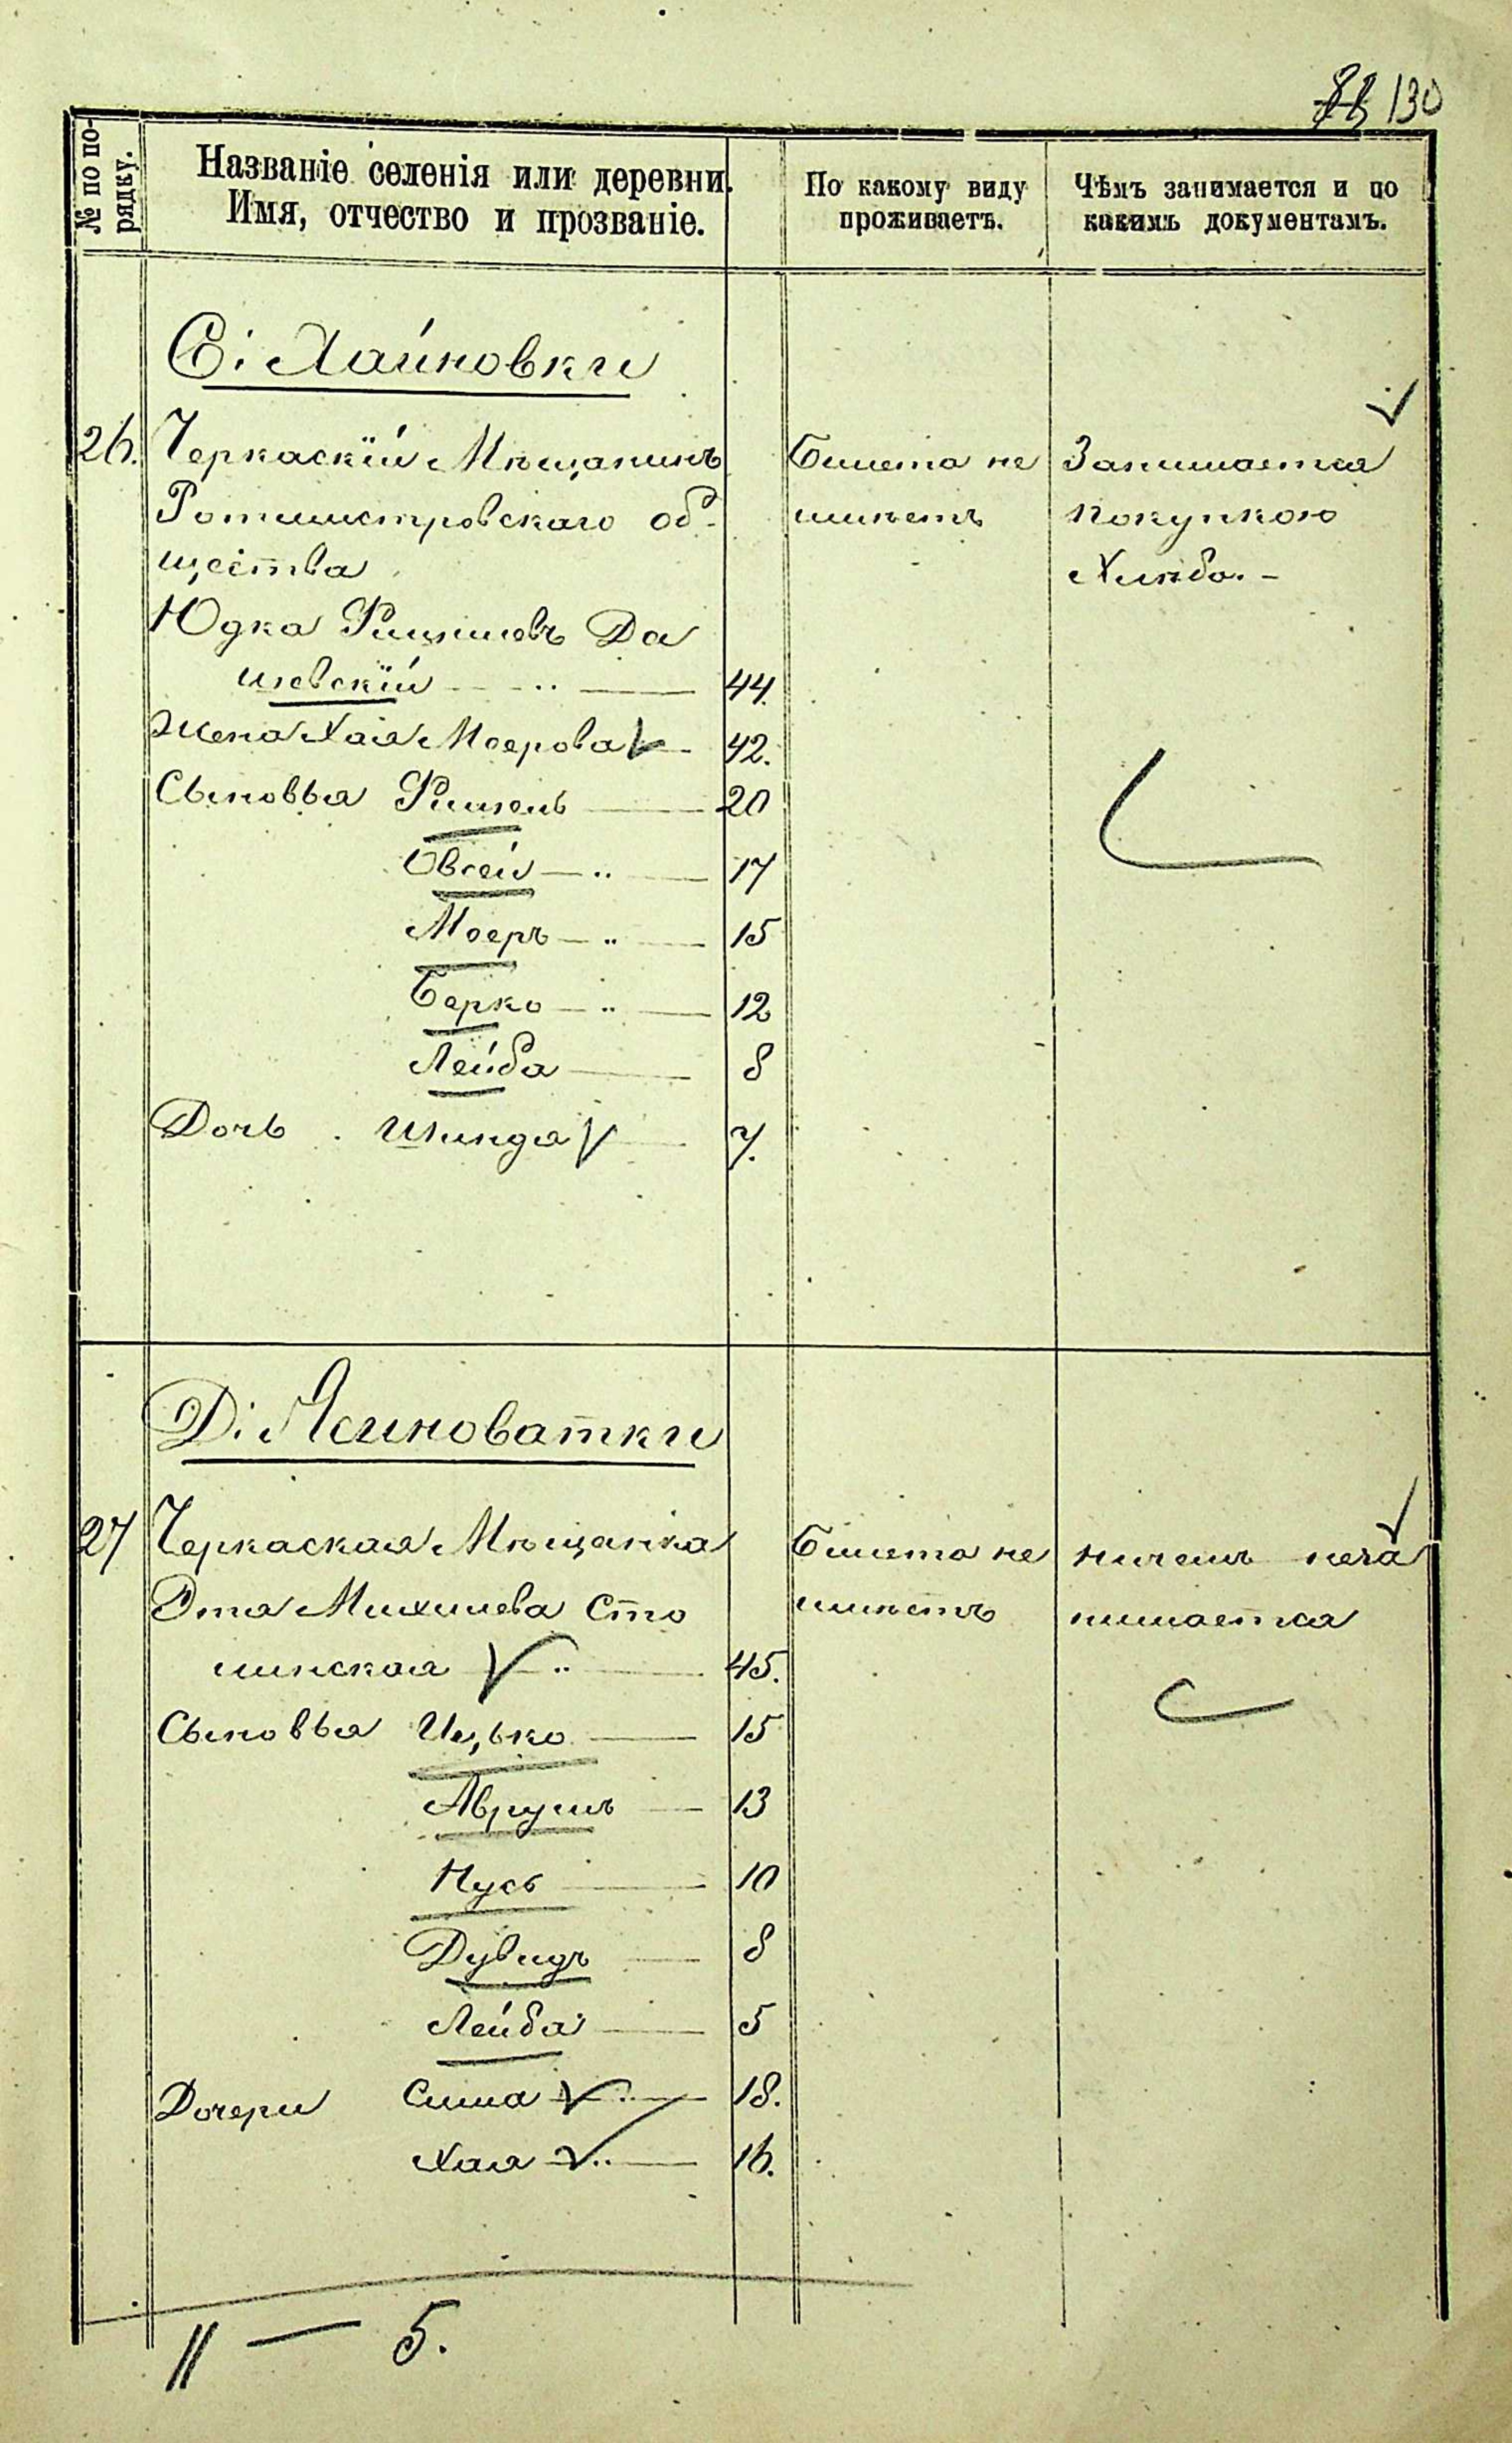 130
№ по по-
рядку.
Названіе селенія или деревни.
Имя, отчество и прозваніе.
По какому виду
проживаетъ.
Чѣмъ занимается и по
какимъ документамъ.
С. Хайновки
26. Черкаскій Мѣщанинъ Билета не Занимается
Ротмистровскаго об- имѣетъ покупкою
щества Хлѣба. -
Юдка Фишелевъ Да
шевскій 44.
Жена Хая Моерова 42.
Сыновья Фишель 20
Овсей 17
Моеръ 15
Берко 12
Лейба 8
Дочь Шинда 7.
Д. Ясиноватки
27 Черкаская Мѣщанка Билета не ничемъ неза
Эта Михилева Сто имѣетъ нимается
линская 45.
Сыновья Ицько 15
Аврумъ 13
Нусь 10
Дувидъ 8
Лейба 5
Дочери Сима 18.
Хая 16.
11 — 5.